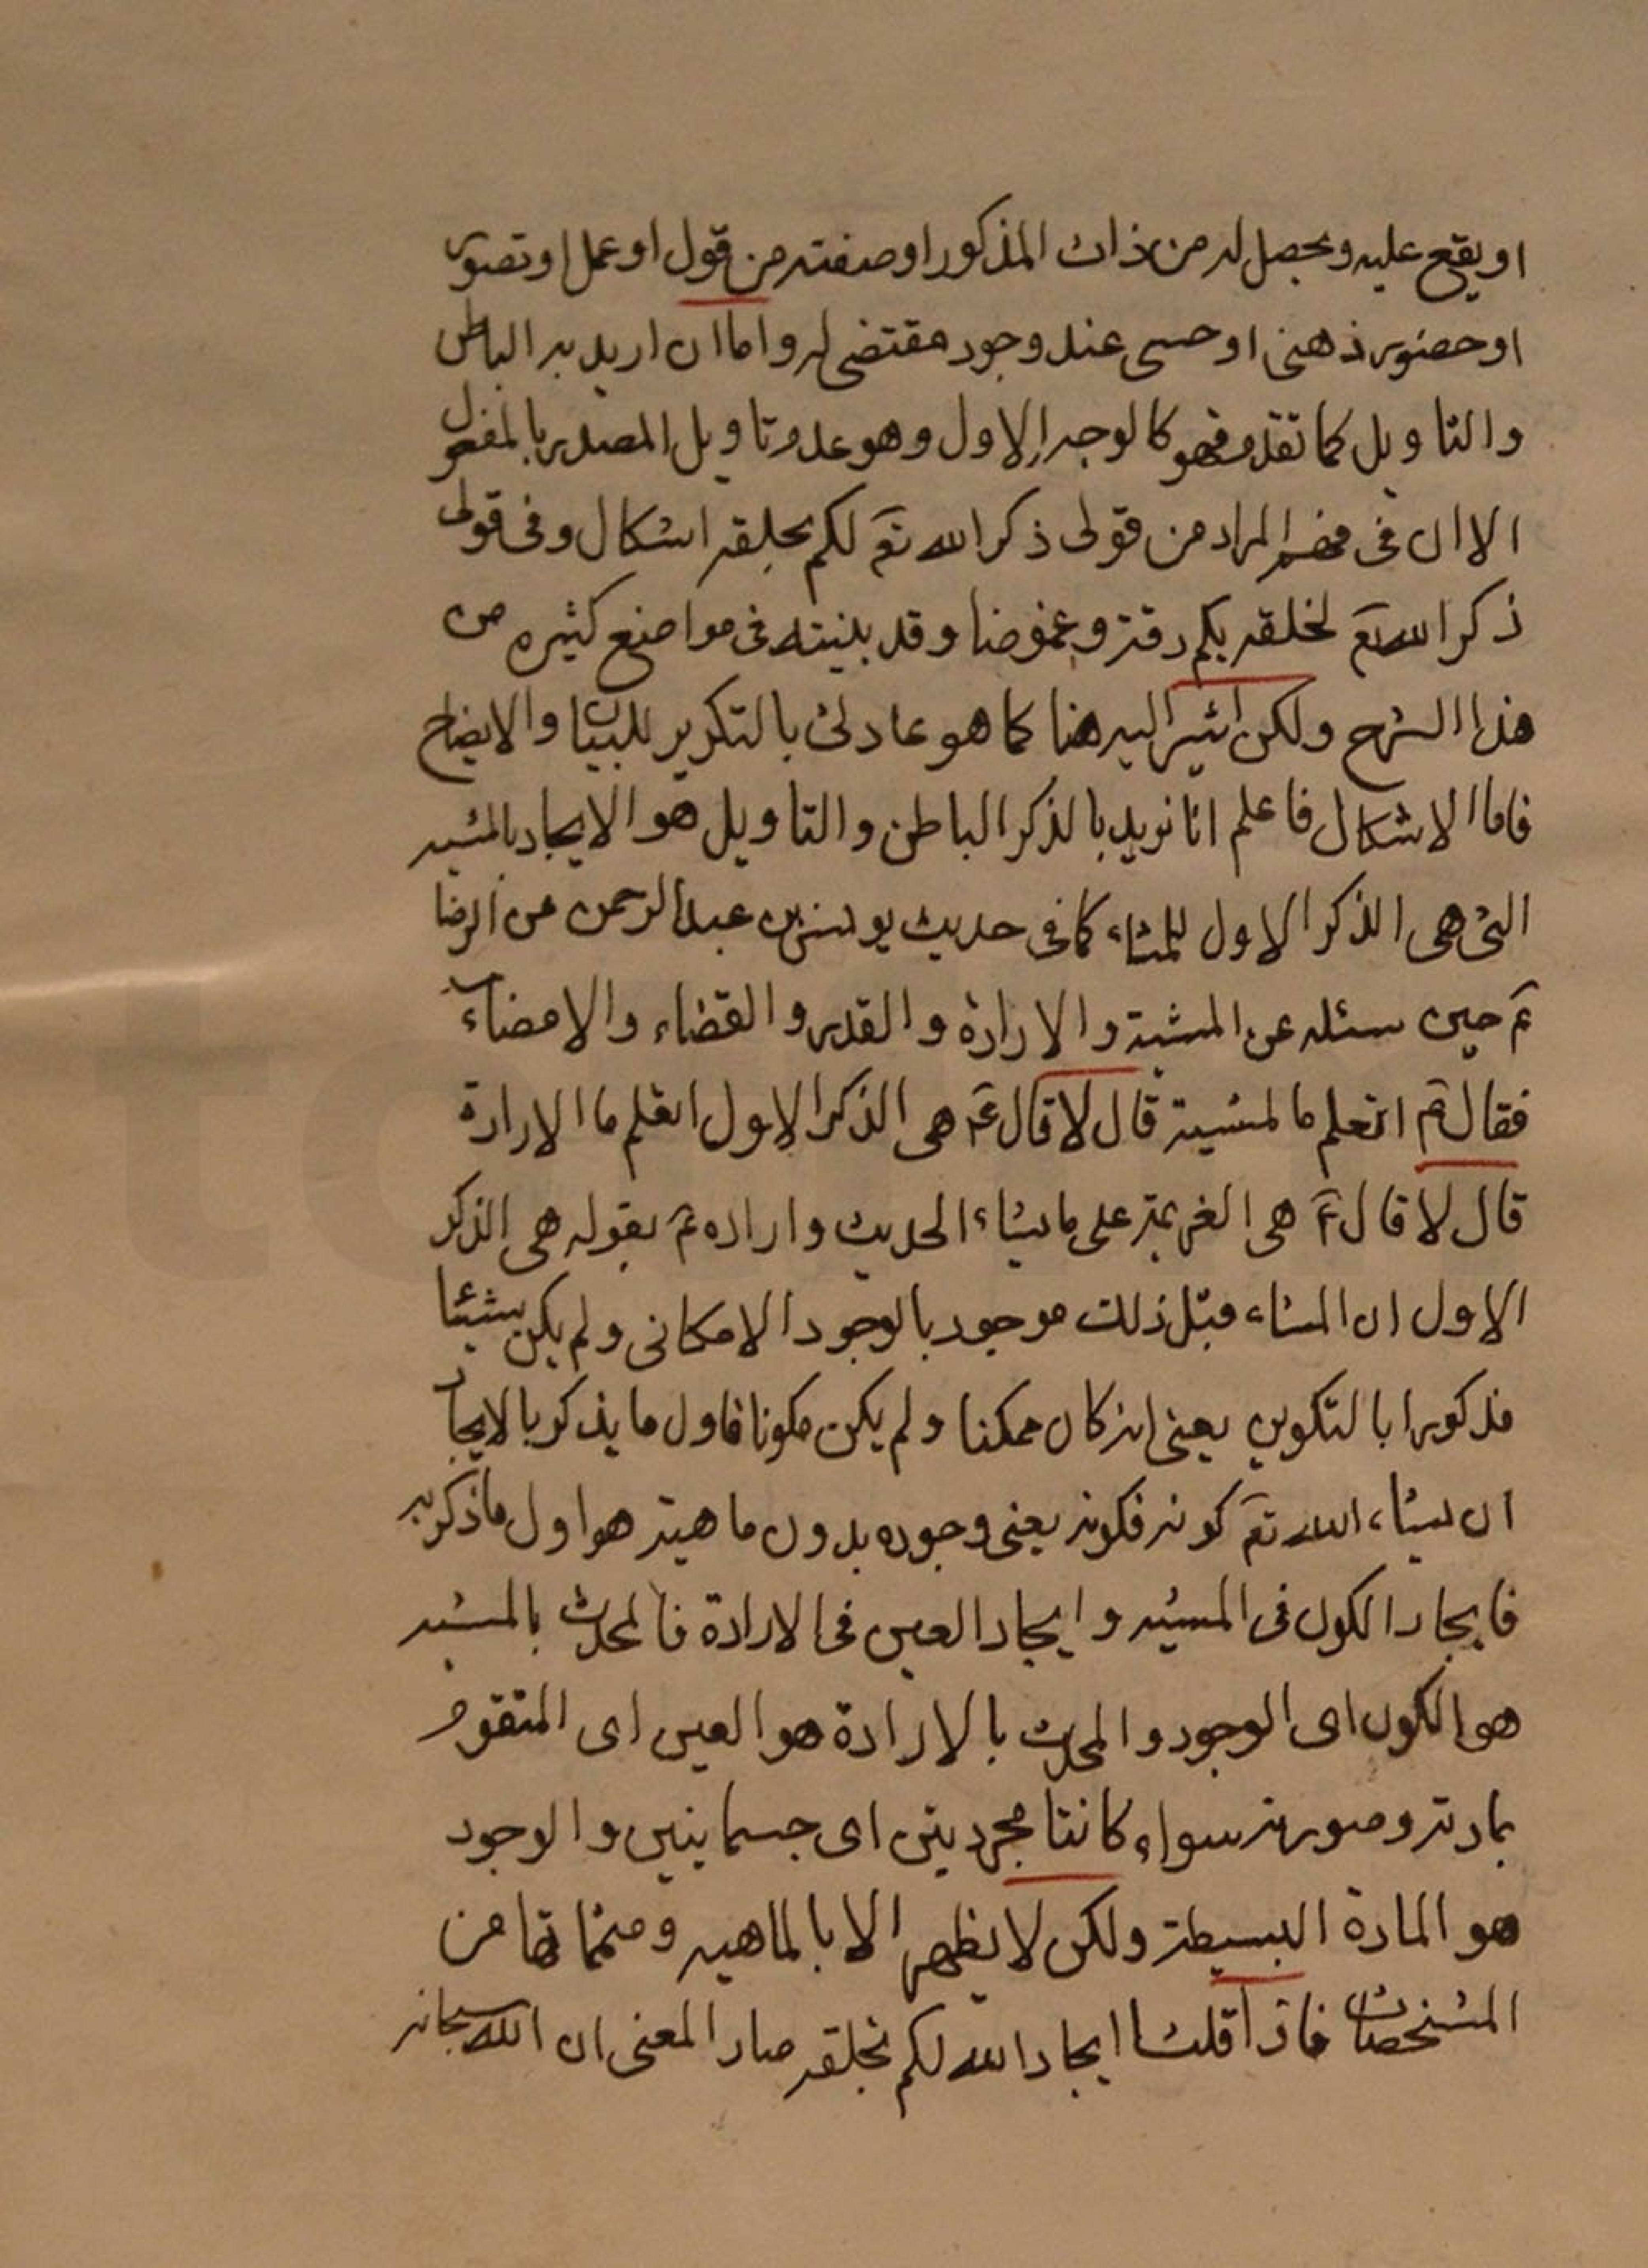 او يقع عليه ويحصل له من ذات المذكور او صفته من قول او عمل او تصور
او حضور ذهنى او حسى عند وجود مقتضى له واما ان اريد به الباطن
والتاويل كما تقدم فهو كالوجه الاول وهو عدم تاويل المصدر بالمفعول
الا ان فى فهم المراد من قولى ذكر الله تعٓ لكم بخلقه اشكال وفى قولى
ذكر الله تعٓ لخلقه بكم دقة وغموضا وقد بينته فى مواضع كثيره من
هذا الشرح ولكن اشير اليه هنا كما هو عادتى بالتكرير للبيان والايضاح
فاما الاشكال فاعلم انا نريد بالذكر الباطن والتاويل هو الايجاد بالمشيه
التى هى الذكر الاول للمشاء كما فى حديث يونس بن عبد الرحمن عن الرضا
عٓ حين سئله عن المشية والارادة والقدر والقضاء والامضاء
فقال عٓ اتعلم ما لمشية قال لا قال عٓ هى الذكر الاول اتعلم ما الارادة
قال لا قال عٓ هى العزيمة على ما يشاء الحديث واراده عٓ بقوله هى الذكر
الاول ان المشاء قبل ذلك موجود بالوجود الامكانى ولم يكن شيئا
مذكورا بالتكوين يعنى انه كان ممكنا ولم يكن مكونا فاول ما يذكر بالايجاد
ان يشاء الله تعٓ كونه فكونه يعنى وجوده بدون ماهيته هو اول ما ذكر به
فايجاد الكون فى المشيه وايجاد العين فى الارادة فالمحدث بالمشيه
هو الكون اى الوجود والمحدث بالارادة هو العين اى المتقوم
بمادته وصورته سواء كانتا مجرديتن اى جسمانيتين والوجود
هو المادة البسيطة ولكن لا يظهر الا بالماهيه ومتمماتها من
المشخصات فاذا قلت ايجاد الله لكم بخلقه صار المعنى ان الله سبحانه